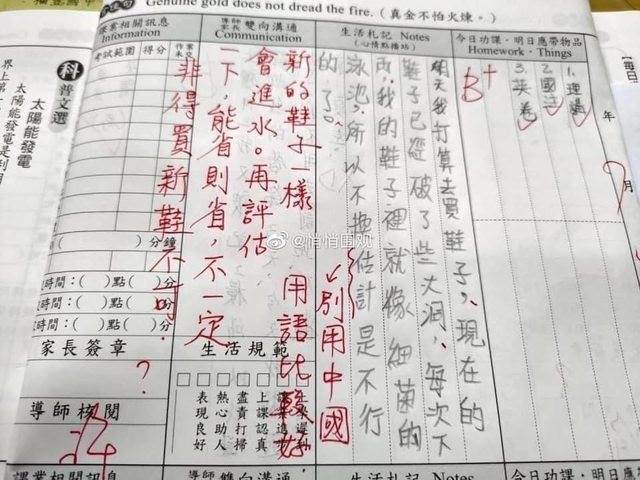 Genuine gold does not dread the fire.（真金不怕火煉。）
今日功課・明日應帶物品
Homework・Things
1.理
2.國
3.英卷
年
月
B+
生活札記 Notes
(心情點播站)
明天我打算去買鞋子,現在的
鞋子已經破了些大洞,每次下
雨,我的鞋子裡就像細菌的
泳池,所以不換估計是不行
的了。
↙別用中國
用語比較好.
導師
家長
雙向溝通
Communication
新的鞋子一樣
會進水。再評估
一下,能省則省,不一定
非得買新鞋不可.
生活規範
上課認真
盡責打掃
熱心助人
表現良好
課業相關訊息
Information
考試範圍
得分
分鐘
時間:( )點( )分
時間:( )點( )分
時間:( )點( )分
家長簽章
?
導師核閱
科普文選
太陽能發電
太陽能發電是利用
界上第一
每日
@悄悄围观
課業相關訊息
導師
雙向溝通
生活札記 Notes
今日功課・明日應帶物品